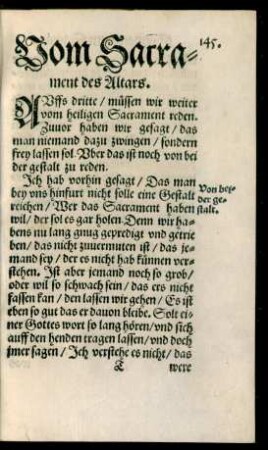 145.
Vom Sacra-
ment des Altars.
AUffs dritte / müssen wir weiter
vom heiligen Sacrament reden.
Zuuor haben wir gesagt / das
man niemand dazu zwingen / sondern
frey lassen sol. Vber das ist noch von bei
der gestalt zu reden.
Ich hab vorhin gesagt / Das man
bey vns hinfurt nicht solle eine Gestalt
reichen / Wer das Sacrament haben
wil / der sol es gar holen. Denn wir ha-
bens nu lang gnug gepredigt vnd getrie
ben / das nicht zuuermuten ist / das je-
mand sey / der es nicht hab künnen ver-
stehen. Ist aber jemand noch so grob /
oder wil so schwach sein / das ers nicht
fassen kan / den lassen wir gehen / Es ist
eben so gut das er dauon bleibe. Solt ei-
ner Gottes wort so lang hören / vnd sich
auff den henden tragen lassen / vnd doch
jmer sagen / Ich verstehe es nicht / das
T were
Von bei-
der ge-
stalt.